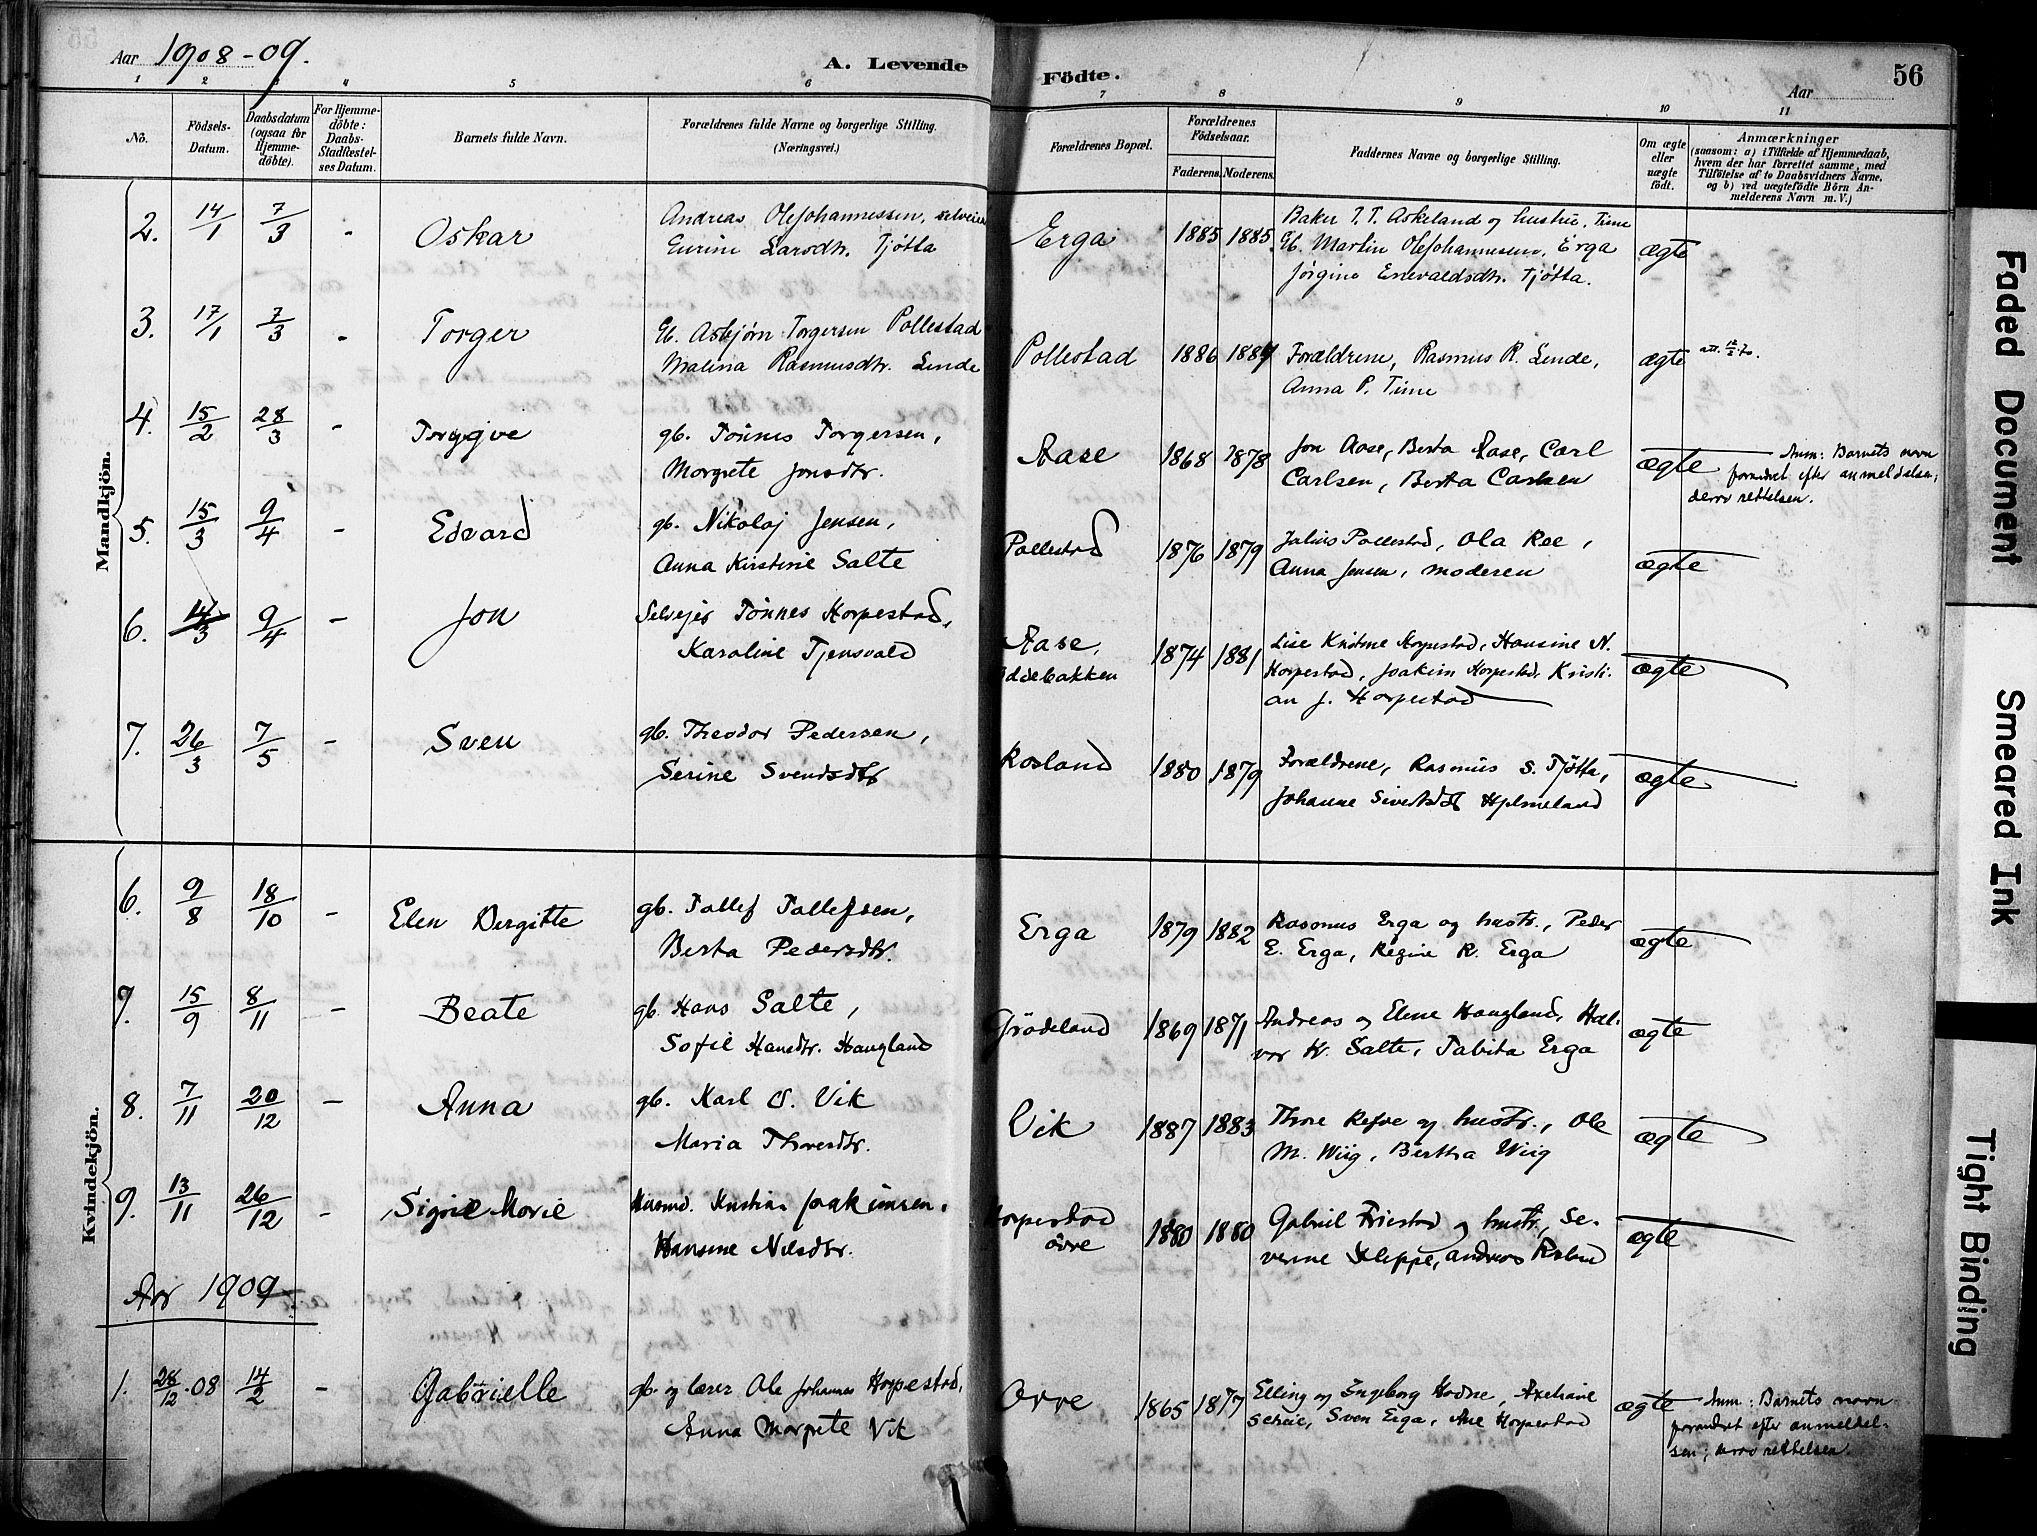 Aar 1908-09.
A. Levende Födte.
56
Aar
1 2 3 4 5 6 7 8 9 10 11
No.
Födsels-Datum.
Daabsdatum (ogsaa for Hjemme-döbte).
For Hjemme-döbte: Daabs-Stadfæstel-ses Datum.
Barnets fulde Navn.
Forældrenes fulde Navne og borgerlige Stilling. (Næringsvei.)
Forældrenes Bopæl.
Forældrenes Födselsaar.
Faderens. Moderens.
Faddernes Navne og borgerlige Stilling.
Om ægte eller uægte födt.
Anmærkninger
(saasom: a) i Tilfælde af Hjemmedaab,
hvem der har forrettet samme, med
Tilföielse af to Daabsvidners Navne,
og b) ved uægtefödte Börn An-
melderens Navn m. V.)
Mandkjön.
2. 14/1 7/3 - Oskar Andreas Olejohannessen, selveier Erga 1885 1885 Baker T. T. Askeland og hustru, Time
Gurine Larsdtr. Tjøtta Gb. Martin Olejohannessen, Erga ægte
Jørgine Enevaldsdtr. Tjøtta.
3. 17/1 7/3 - Torger Gb. Asbjørn Torgersen Pollestad Pollestad 1886 Forældrene, Rasmus R. Lende, ægte
Malena Rasmusdtr. Lende Anna P. Time
4. 15/2 28/3 - Trygve gb. Tönnes Torgersen, Aase 1868 1878 Jon Aase, Berta Aase, Carl ægte Anm: Barnets navn
Margrete Jonsdtr. Carlsen, Berta Carlsen forandret efter anmeldelsen;
derav rettelsen.
5. 15/3 9/4 - Edvard gb. Nikolaj Jensen, Pollestad 1876 1879 Julius Pollestad, Ola Ree, ægte
Anna Kirstine Salte Anna Jensen, moderen
6. 14/3 9/4 - Jon Selvejer Tönnes Horpestad, Aase, 1874 1881 Lise Kristine Horpestad, Hansine N. ægte
Karoline Tjensvold Horpestad, Joakim Horpestad, Kristi-
an J. Horpestad
7. 26/3 7/5 - Sven gb. Theodor Pedersen, Rosland 1880 1879 Forældrene, Rasmus S. Tjötta, ægte
Serine Svendsdtr Johanne Sivertsdtr Hjelmeland
Kvindekjön.
6. 9/8 18/10 - Elen Birgitte gb. Tollef Tollefsen, Erga 1879 1882 Rasmus Erga og hustr., Peder ægte
Berta Pedersdtr. E. Erga, Regine R. Erga
7. 15/9 8/11 - Beate gb. Hans Salte, Grödeland 1869 1871 Andreas og Elene Haugland, Hal- ægte
Sofie Hansdtr. Haugland vor H. Salte, Tabita Erga
8. 7/11 20/12 - Anna gb. Karl O. Vik Vik 1887 1883 Thore Refve og hustr., Ole ægte
Maria Thoresdtr. M. Wiig, Bertha Wiig
9. 13/11 26/12 - Sigrid Marie Husmd. Kristian Joakimsen, Horpestad 1880 1880 Gabriel Friestad og hustr., Se- ægte
Hansine Nilsdtr. övre verine Kleppe, Andreas
Aar 1909
1. 28/12-08 14/2 - Gabrielle gb. og lærer Ole Johannes Horpestad, Orre 1865 1877 Elling og Ingeborg Hodne, Axeliane ægte Anm: Barnets navn
Anna Margrete Vik Sven Erga, Ane Horpestad forandret efter anmeldel-
sen; derav rettelsen.
Faded Document
Smeared Ink
Tight Binding